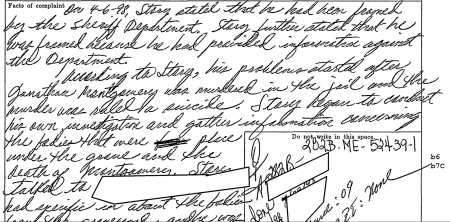 Facts of complaint
On 4-6-98, Story stated that he had been framed
by the Sheriff Department. Story further stated that he
was framed because he had provided information against
the Department.
According to Story, his problems started after
Jonathan Montgomery was murdered in the jail and the
murder was ruled a suicide. Story began to conduct
his own investigation and gather information concerning
the bodies that were place
under the grave and the
death of Montgomery. Story
talked to
had specific in about the bodies
and he was
Do not write in this space.
282B-ME-52439-1
b6
b7C
None